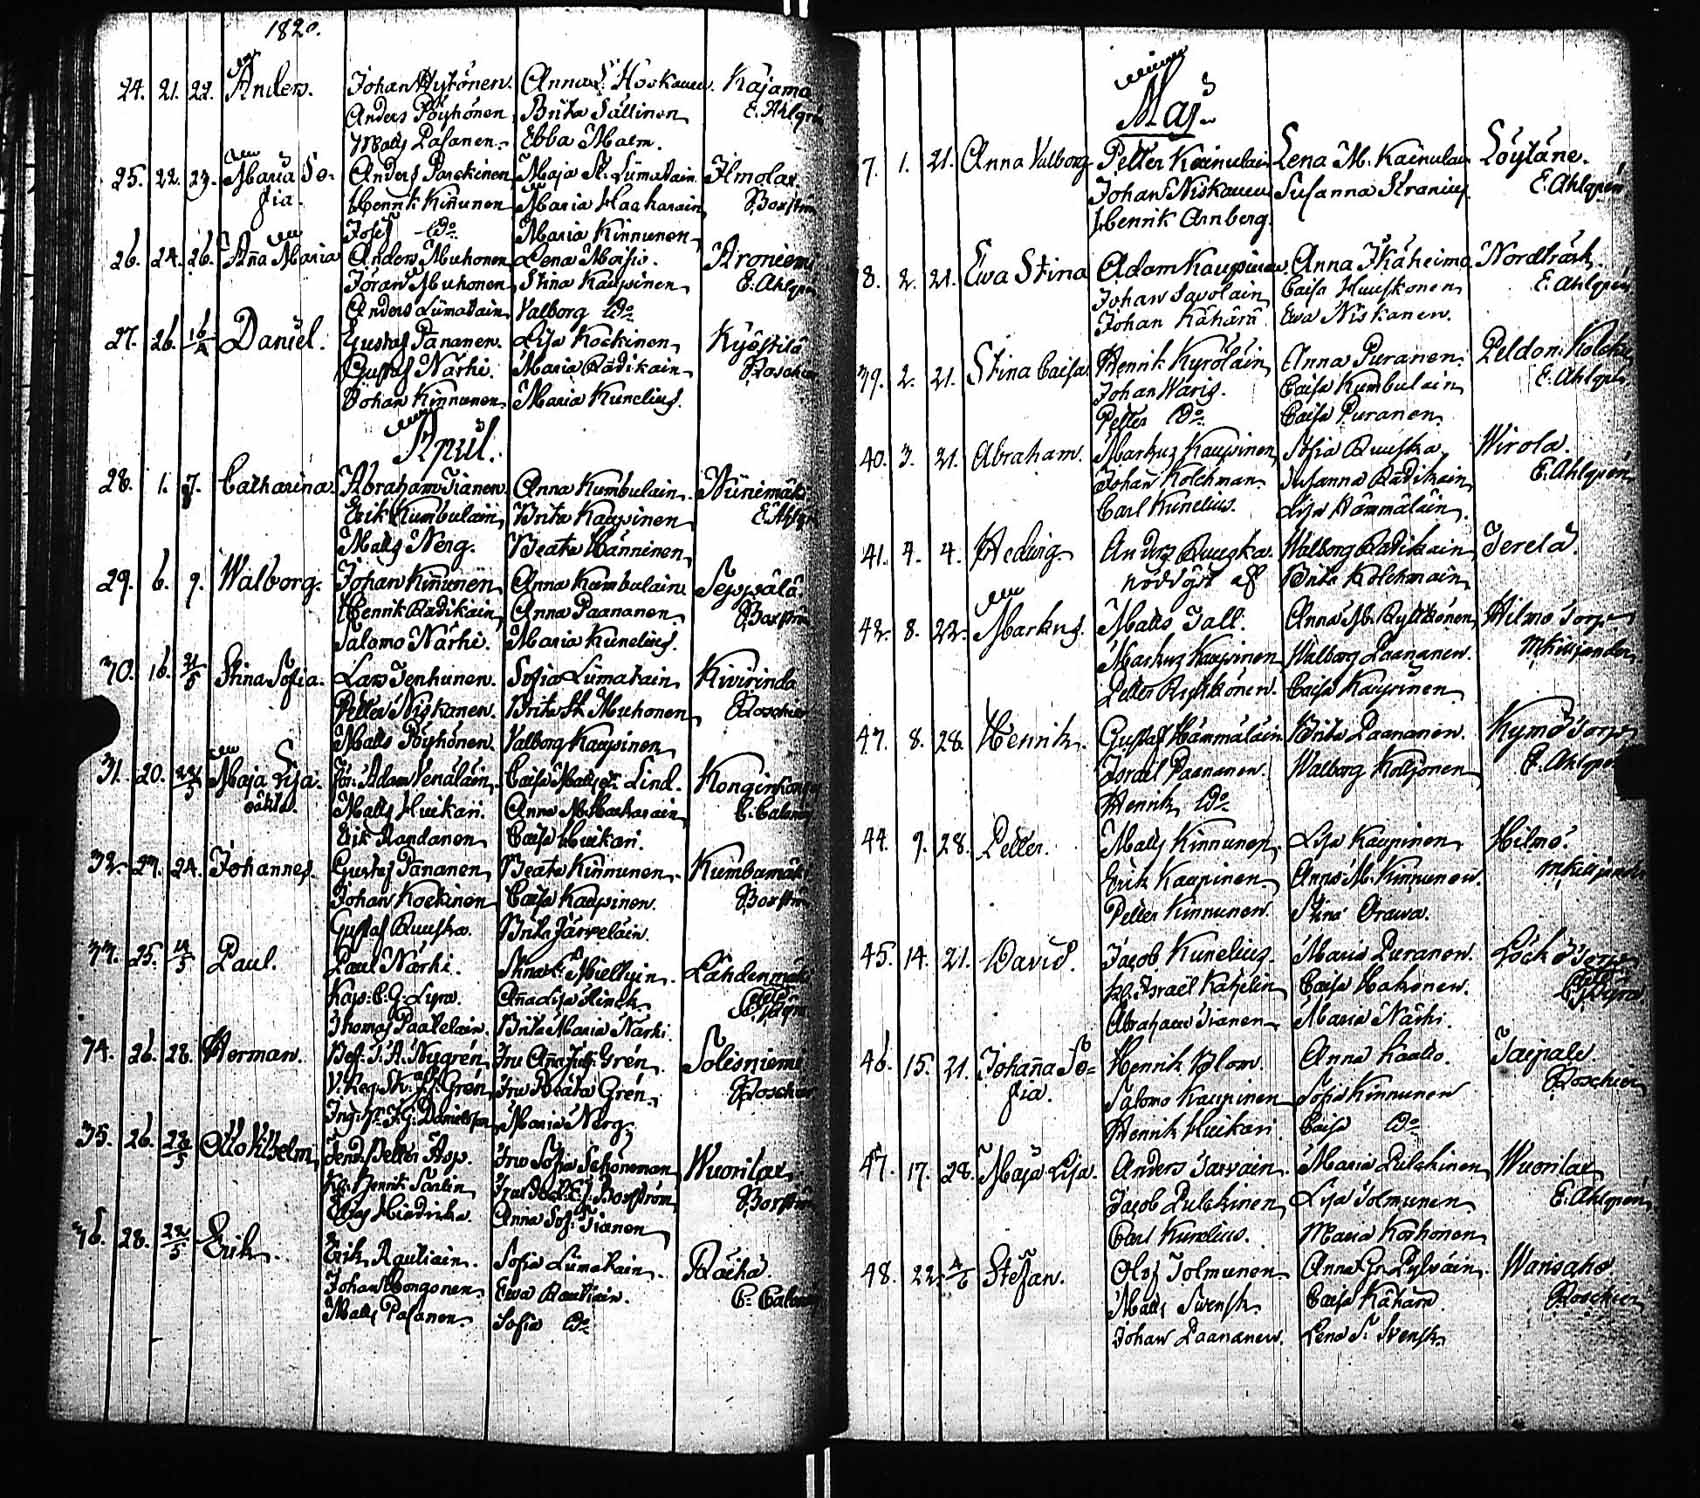 1820.
24. 21. 22. Anders. Johan Hytönen. Anna L. Hoskanen. Kajama
Anders Pöyhönen Brita Sallinen E. Ahlgrén
Matts Pasanen. Ebba Malm.
25. 22. 23. Maria So= Anders Parckinen Maja St. Lumatain Ilmolax.
fia. Henrik Kinunen Maria Haaharain Borström
Josef Do Maria Kinnunen
26. 24. 26. Aña Maria Anders Muhonen Lena Moisio. Aroniemi
Jöran Muhonen Stina Kaupinen E. Ahlgrén
Anders Lumatain Valborg Do
27. 26. 16/4 Daniel. Gustaf Pananen. Lisa Kockinen Kyöstilä
Gustaf Närhi. Maria Rädikain Roschier
Johan Kinnunen Maria Kunelius.
April.
28. 1. 7. Catharina. Abraham Tianen Anna Kumbulain Niinimäki
Erik Kumbulain Brita Kaupinen E. Ahlgrén
Matts Nerg. Beata Hänninen
29. 6. 9. Walborg. Johan Kinnunen Anna Kumbulain Seppälä.
Henrik Rädikain Anna Paananen. Borström
Salomo Närhi. Maria Kunelius.
30. 16. 21/5 Stina Sofia. Lars Tenhunen. Sofia Lumatain Kivirinda
Petter Niskanen. Brita St. Muhonen Roschier
Matts Pöyhönen Valborg Kaupinen
31. 20. 22/5 Maja Lisa. Jör: Adam Venäläin, Caisa Lind. Konginkangas
oäkta. Matts Huikari. Anna M. Haaharain
Erik Randanen Caisa Huikari.
32. 23. 24. Johannes. Gustaf Pananen Beata Kinnunen. Kumbumäki
Johan Kockinen Caisa Kaupinen. Borström
Gustaf Ruuska Brita Järveläin.
33. 25. Paul. Paul Närhi. Lähdenmäki
Kap: C. G. Lyra. Aña Lisa
Thomas Paavelain. Brita Maria Närhi
34. 26. 28. Herman. Bef: J. A. Nygrén Fru Aña Grén. Solisniemi
V. Reg: Skr: Grén Fru Beata Grén. Roschier
Maria Nerg
35. 26. 28/5 Otto Vilhelm Petter Asp. Fru Sofia Schöneman Wuorilax
Henrik Borström Borström
Anna Sof: Tianen
36. 28. 22/5 Erik. Erik Rautiain. Sofia Lumatain. Räihä.
Johan Hongonen Ewa Rautiain.
Matts Pasanen. Sofia Do
Maj.
7. 1. 21. Anna Valborg Petter Kainulain Lena M. Kainulain Löytäne.
Johan Niskanen Susanna Stranius E. Ahlgrén
Henrik Annberg.
8. 2. 21. Ewa Stina Adam Kaupinen Anna Ikäheimo Nordträsk.
Johan Savolain Caisa Huuskonen E. Ahlgrén
Johan Kähärä Ewa Niskanen.
39. 2. 21. Stina Caisa Henrik Kyröläin Anna Puranen. Peldom: Kolehm
Johan Waris. Caisa Kumbulain E. Ahlgrén
Petter Do Caisa Puranen.
40. 3. 21. Abraham. Markus Kaupinen Sofia Ruuska. Wirola.
Johan Kolehman. Susanna Rädikain E. Ahlgrén
Carl Kunelius. Lisa Hämmäläin.
41. 4. 4. Hedvig Anders Ruuska. Walborg Rädikain Jerelä.
nöddöpt af Brita Kolehmain
42. 8. 22. Markus. Matts Tall. Anna M. Rytkönen Hilmo Torp
Markus Kaupinen Walborg Paananen. M. Kiljander
Petter Rytkönen. Caisa Kaupinen
43. 8. 28. Henrik. Gustaf Hämmäläin Brita Paananen. Kymö Torp
Israel Paananen. Walborg Kotjonen E. Ahlgrén
Henrik Do
44. 9. 28. Petter. Matts Kinnunen. Lisa Kaupinen Hilmo.
Erik Kaupinen. Anna M. Kinnunen. M. Kiljander
Petter Kinnunen Stina Orava.
45. 14. 21. David. Jacob Kunelius. Maria Puranen. Löckö Torp
Israel Kahelin Caisa Hakonen. Lyra
Abraham Tianen Maria Närhi.
46. 15. 21. Johaña So= Henrik Blom. Anna Kaato. Taipale.
fia. Salomo Kaupinen Sofia Kinnunen Roschier
Henrik Huikari. Caisa Do
47. 17. 28. Maja Lisa. Anders Sarvain. Maria Pulckinen Wuorilax
Jacob Pulckinen Lisa Tolmunen E. Ahlgrén
Carl Kunelius. Maria Korhonen
48. 22. 4/6 Stefan. Olof Tolmunen Anna Pylväin. Warisaho
Matts Svensk Caisa Kähärä. Roschier
Johan Paananen. Lena S. Svensk